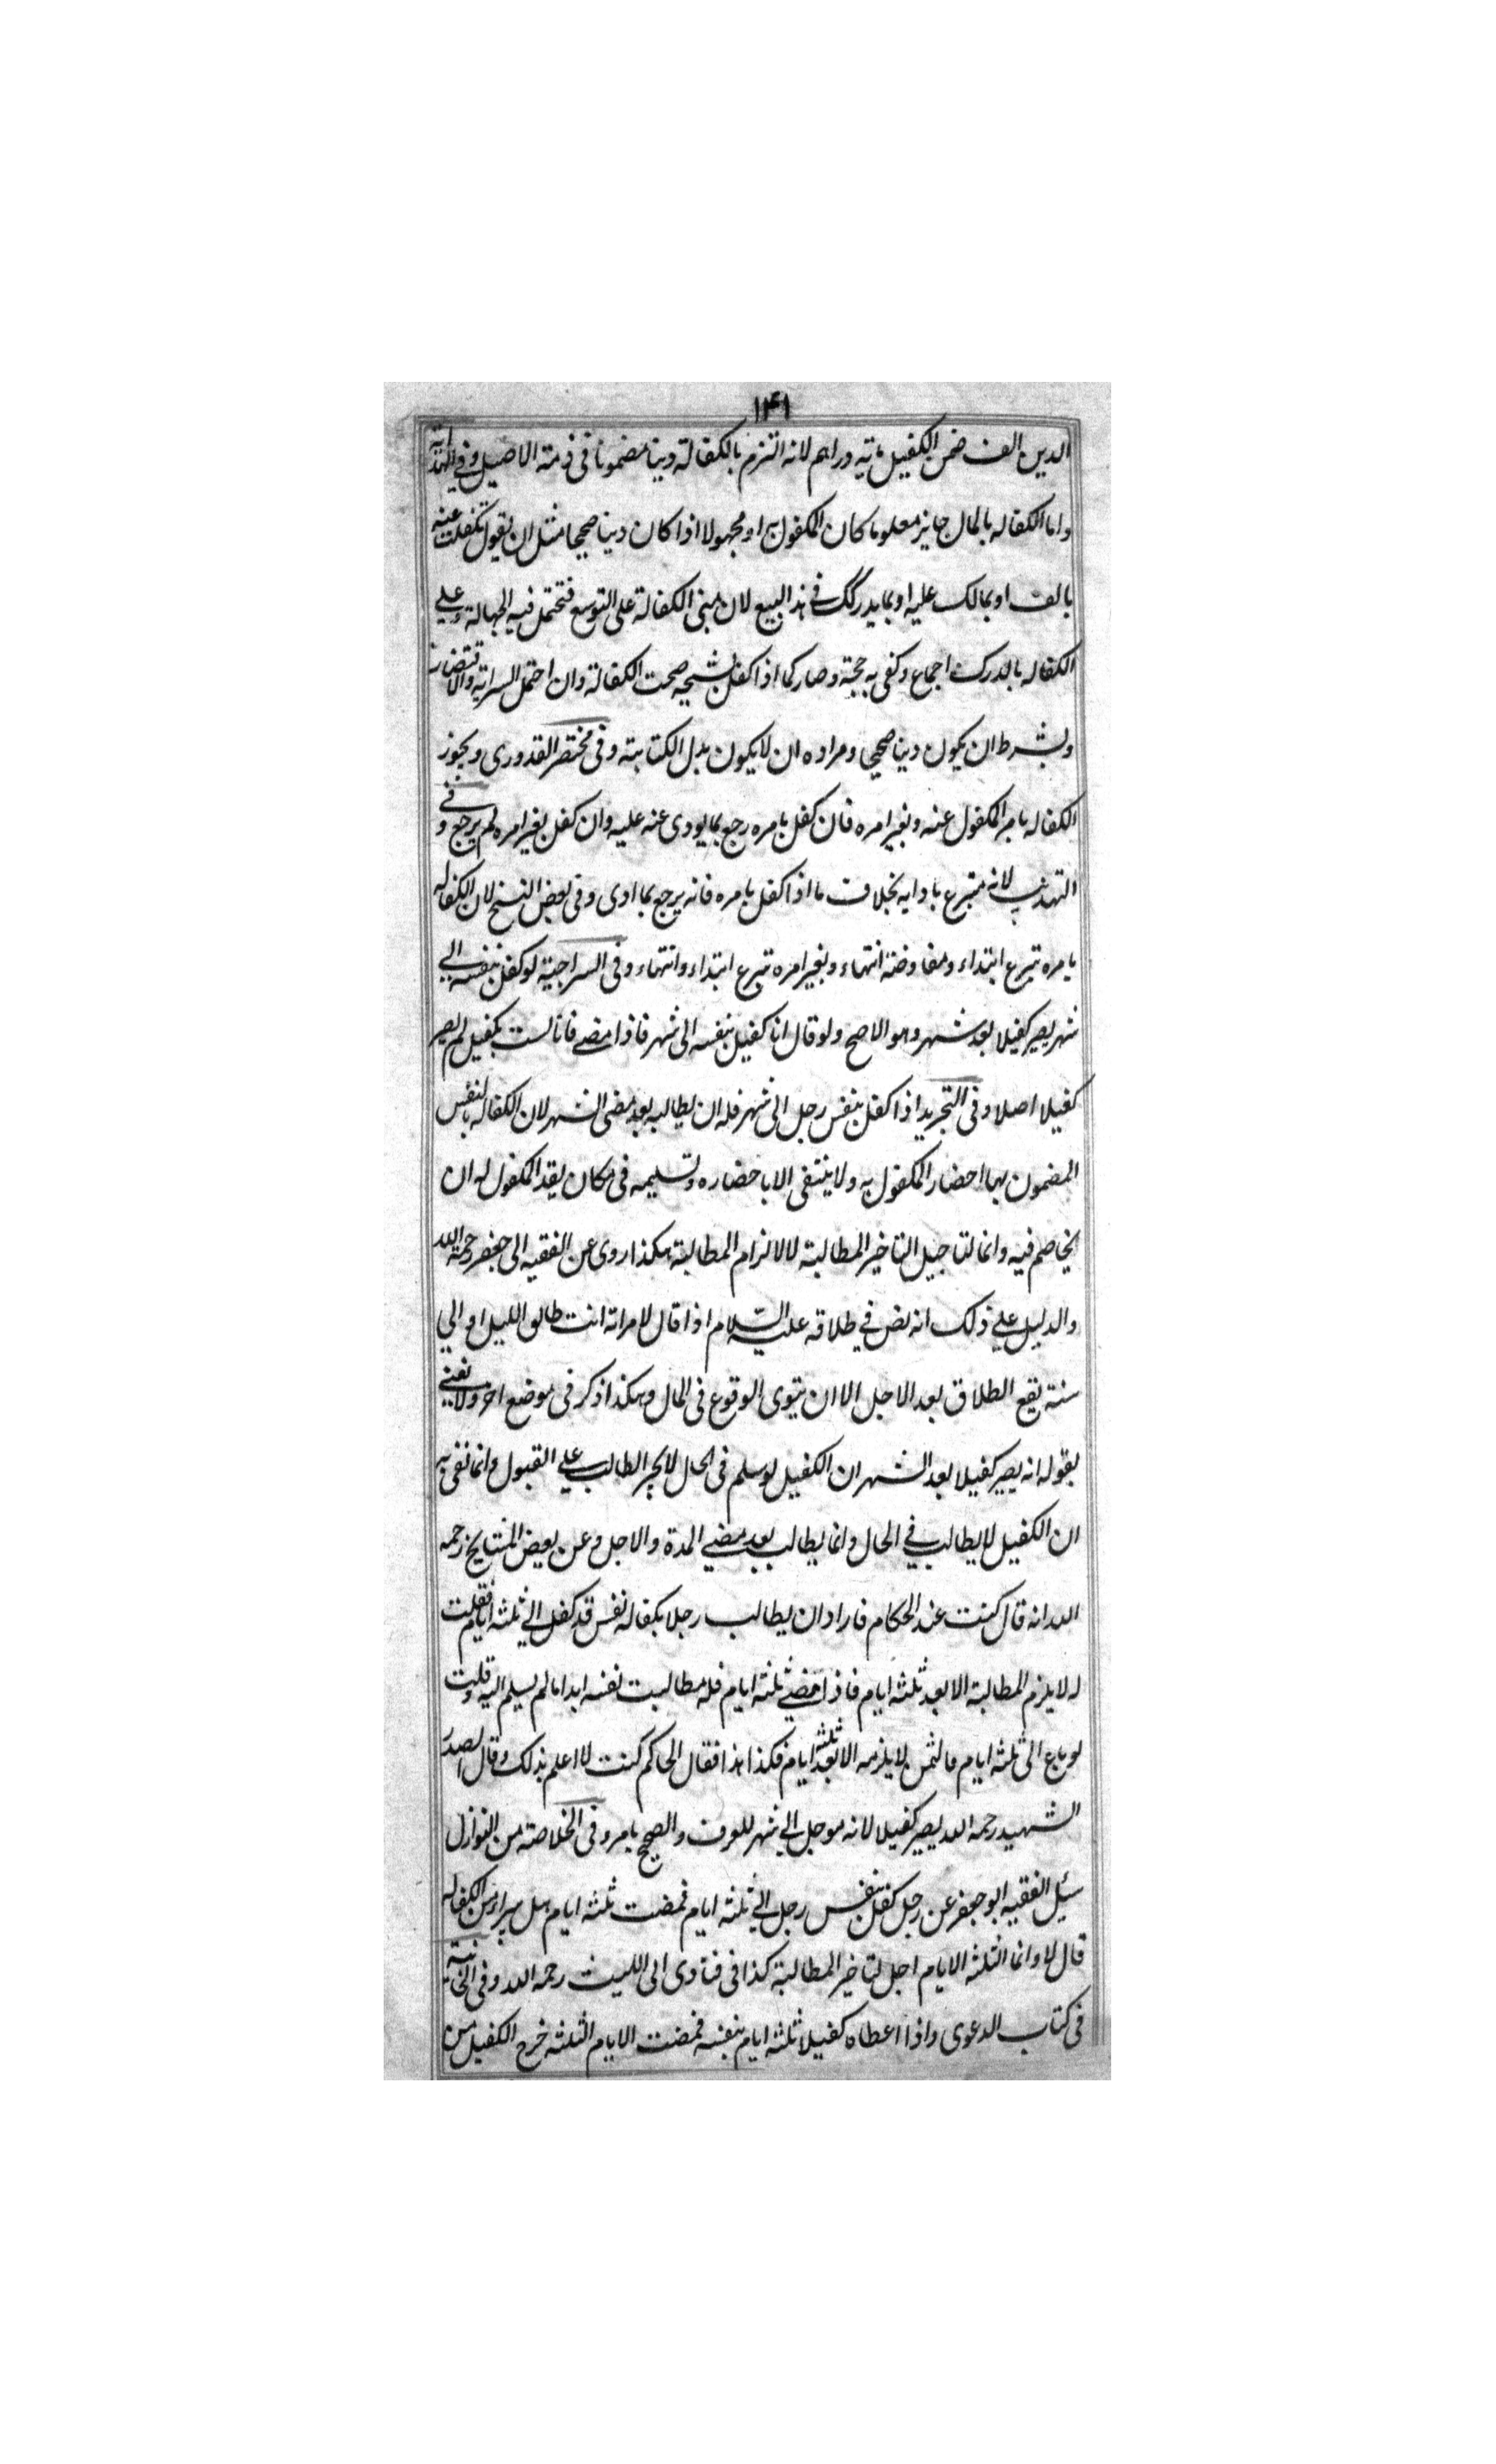 ١٤١
الدين الف ضمن الكفيل ماتيه دراهم لانه التزم بالكفالة دينا مضمونا فى ذمته الاصيل وفي الهداية
واما الكفاله بالمال جايز معلوما كان المكفول به او مجهولا اذا كان دينا صحيحا مثل ان يقول تكفلت عنه
بالف او بمالك عليه او بما يدركك في هذا البيع لان مبنى الكفالة على التوسع فتحتمل فيه الجهالة وعلى
الكفاله بالدرك اجماع وكفى به حجة وصار كما اذا كفل بشجه صحت الكفالة وان احتمل السراية والاقتصار
وبشرط ان يكون دينا صحيحا ومراده ان لا يكون بدل الكتابته وفى مختصر القدورى ويجوز
الكفاله بامر المكفول عنه وبغير امره فان كفل بامره رجع بما يودى عنه عليه وان كفل بغير امره لم يرجع وفي
التهذيب لانه متبرع بادايه بخلاف ما اذا كفل بامره فانه يرجع بما ادى وفى بعض النسخ لان الكفاله
بامره تبرع ابتداء ومفاوضة انتهاء وبغير امره تبرع ابتداء وانتهاء وفى السراجية لو كفل بنفسه الى
شهر يصير كفيلا بعد شهر وهو الاصح ولو قال انا كفيل بنفسه الى شهر فاذا مضى فانا لست بكفيل لم يصر
كفيلا اصلا وفى التجريد اذا كفل بنفس رجل الى شهر فله ان يطالبه بعد مضى الشهر لان الكفاله بالنفس
المضمون بها احضار المكفول به ولا ينتفى الا باحضاره وتسليمه فى مكان يقدر المكفول له ان
يخاصم فيه وانما لتاجيل التاخير المطالبة لا لالزام المطالبة هكذا روى عن الفقيه ابى جعفر رحمة الله
والدليل علي ذلك انه نص في طلاقه عليه السلام اذا قال لامراته انت طالق الليل او الي
سنة يقع الطلاق بعد الاجل الا ان ينوى الوقوع فى الحال وهكذا ذكر فى موضع اخر ولا نعني
بقوله انه يصير كفيلا بعد الشهر ان الكفيل لو سلم فى الحال لا يجبر الطالب على القبول وانما نفى به
ان الكفيل لا يطالب في الحال وانما يطالب بعد مضي المدة والاجل وعن بعض المشايخ رحمه
الله انه قال كنت عند الحكام فاراد ان يطالب رجلا بكفاله نفس قد كفل الي ثلثه ايام فقلت
له لا يلزم المطالبة الا بعد ثلثه ايام فاذا مضي ثلثه ايام فله مطالبت نفسه ابدا مالم يسلم اليه وقلت
لو باع الى ثلثه ايام فالثمن لا يلزمه الا بعد ثلثه ايام فكذا هذا فقال الحاكم كنت لا اعلم بذلك وقال الصدر
الشهيد رحمه الله يصير كفيلا لانه موجل الي شهر للعرف والصحيح ما مر وفى الخلاصة من النوازل
سئيل الفقيه ابو جعفر عن رجل كفل بنفس رجل الي ثلثه ايام فمضت ثلثه ايام هل يبراء من الكفاله
قال لا وانما الثلثه الايام اجل لتاخير المطالبة كذا فى فتاوى ابى الليث رحمه الله وفى الخانية
فى كتاب الدعوى واذا اعطاه كفيلا ثلثه ايام بنفسه فمضت الايام الثلثه خرج الكفيل من